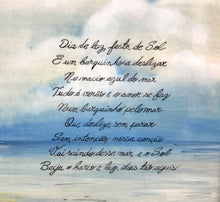 Dia de luz, festa de Sol
E um barquinho a deslizar
No macio azul do mar
Tudo é verão e o amor se faz
Num barquinho pelo mar
Que desliza sem parar
Sem intenção, nossa canção
Vai saindo desse mar, e o Sol
Beija o barco e luz, dias tão azuis